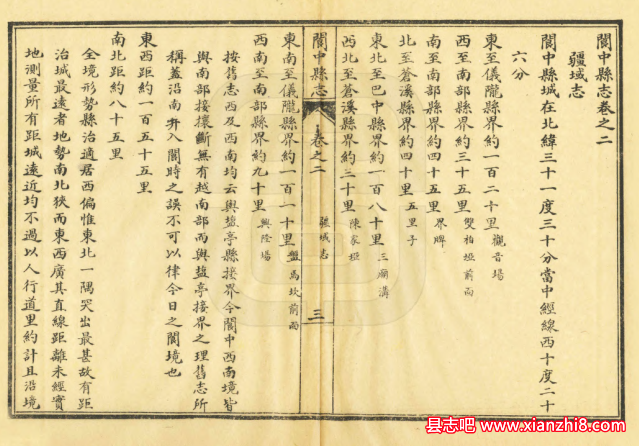 閬中縣志卷之二
疆域志
閬中縣城在北緯三十一度三十分當中經線西十度二十
六分
東至儀隴縣界約一百二十里觀音場
西至南部縣界約三十五里雙柏埡前面
南至南部縣界約四十五里界牌
北至蒼溪縣界約四十里五里子
東北至巴中縣界約一百八十里三廟溝
西北至蒼溪縣界約三十里陳家埡
閬中縣志
卷之二
疆域志
三
東南至儀隴縣界約一百一十里盤馬坎前面
西南至南部縣界約九十里興隆場
按舊志西及西南均云與鹽亭縣接界今閬中西南境皆
與南部接壤斷無有越南部而與鹽亭接界之理舊志所
稱蓋沿南部入閬時之誤不可以律今日之閬境也
東西距約一百五十五里
南北距約八十五里
全境形勢縣治適居西偏惟東北一隅突出最甚故有距
治城最遠者地勢南北狹而東西廣其直線距離未經實
地測量所有距城遠近均不過以人行道里約計且沿境
县志吧
www.xianzhi8.com